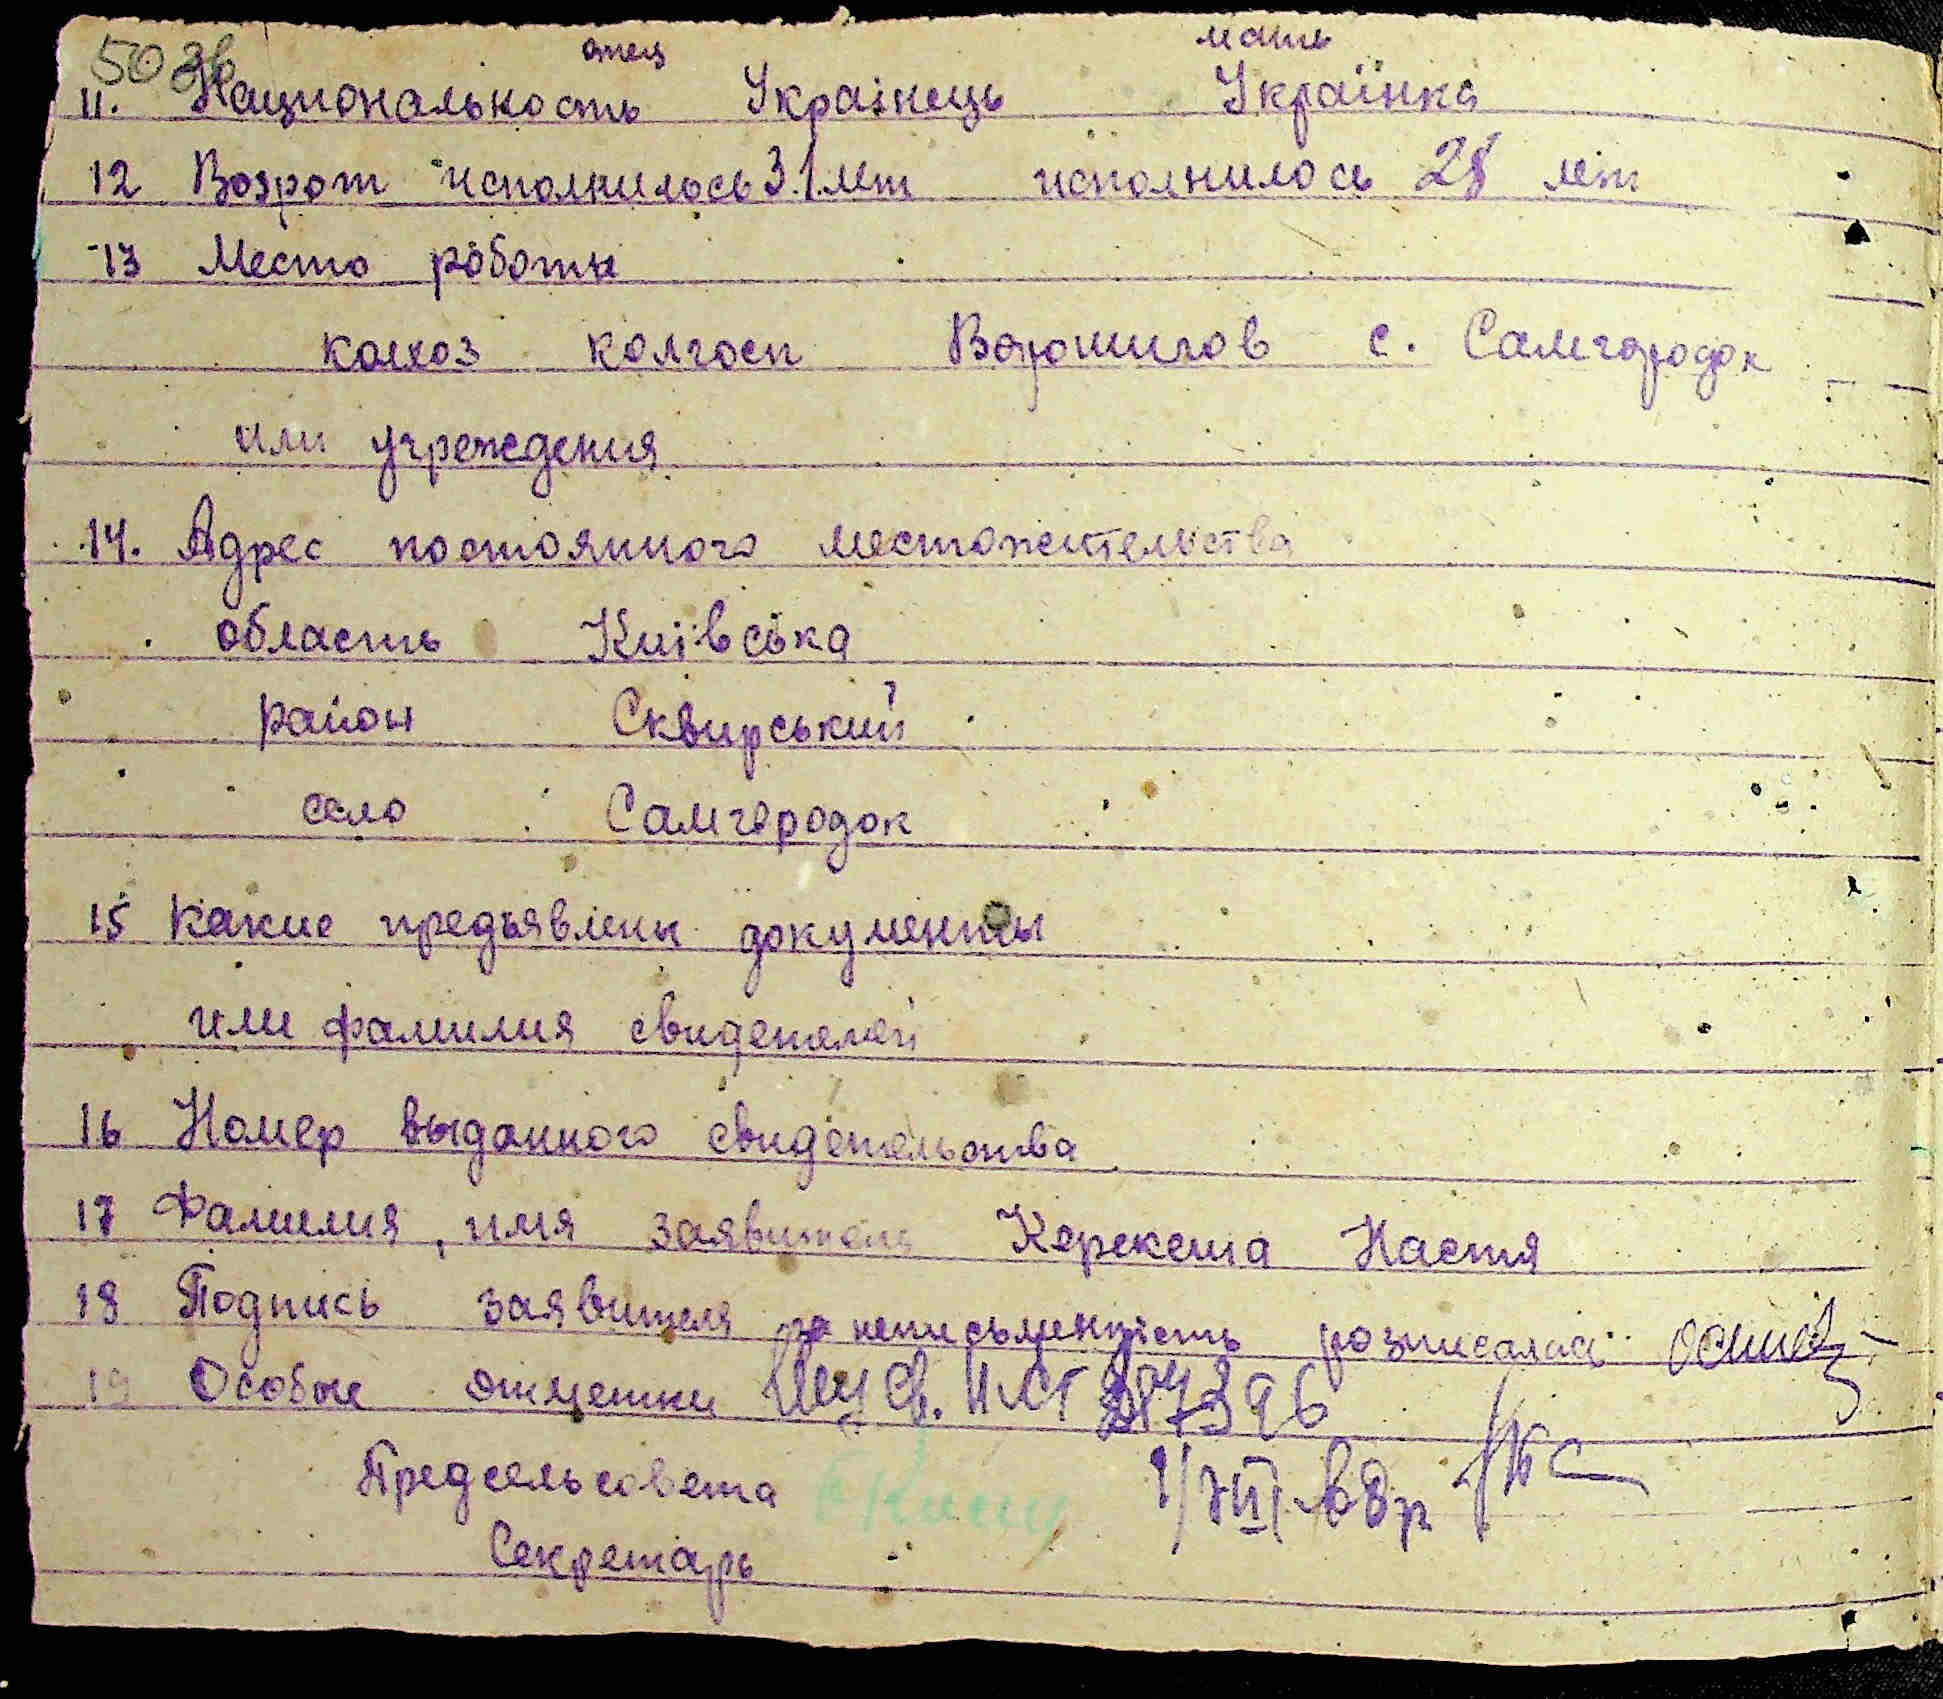 50 зв
отец мать
11. Национальность Українець Українка
12 Возрот исполнилось 31 лет исполнилось 28 лет
13 Место роботы
колхоз колгосп Ворошилов с. Самгородок
или учреждения
14. Адрес постоянного местожительства
область Київська
район Сквирський
село Самгородок
15 Какие предъявлены документы
или фамилия свидетелей
16 Номер выданного свидетельства
17 Фамилия, имя заявителя Керекеша Настя
18 Подпись заявителя за неписьменність розписалась
19 Особые отметки
Предсельсовета
Секретарь